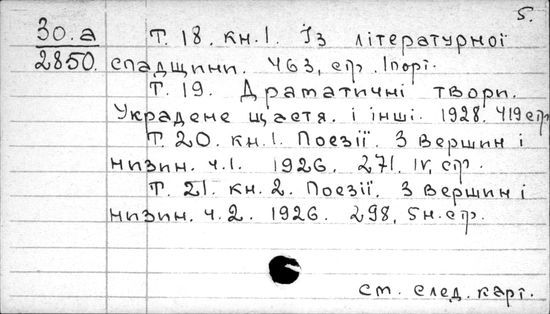 5.
30.а Т. 18. кн.1. Із літературної
2850. спадщини. 463, стр. 1порт.
Т. 19. Драматичні твори.
Украдене щастя. і інші. 1928. 419 стр
Т. 20. кн.1. Поезії. З вершин і
низин. ч.1. 1926. 271. IV, стр.
Т. 21. кн. 2. Поезії. З вершин і
низин. ч. 2. 1926. 298, 5н.стр.
см. след. карт.